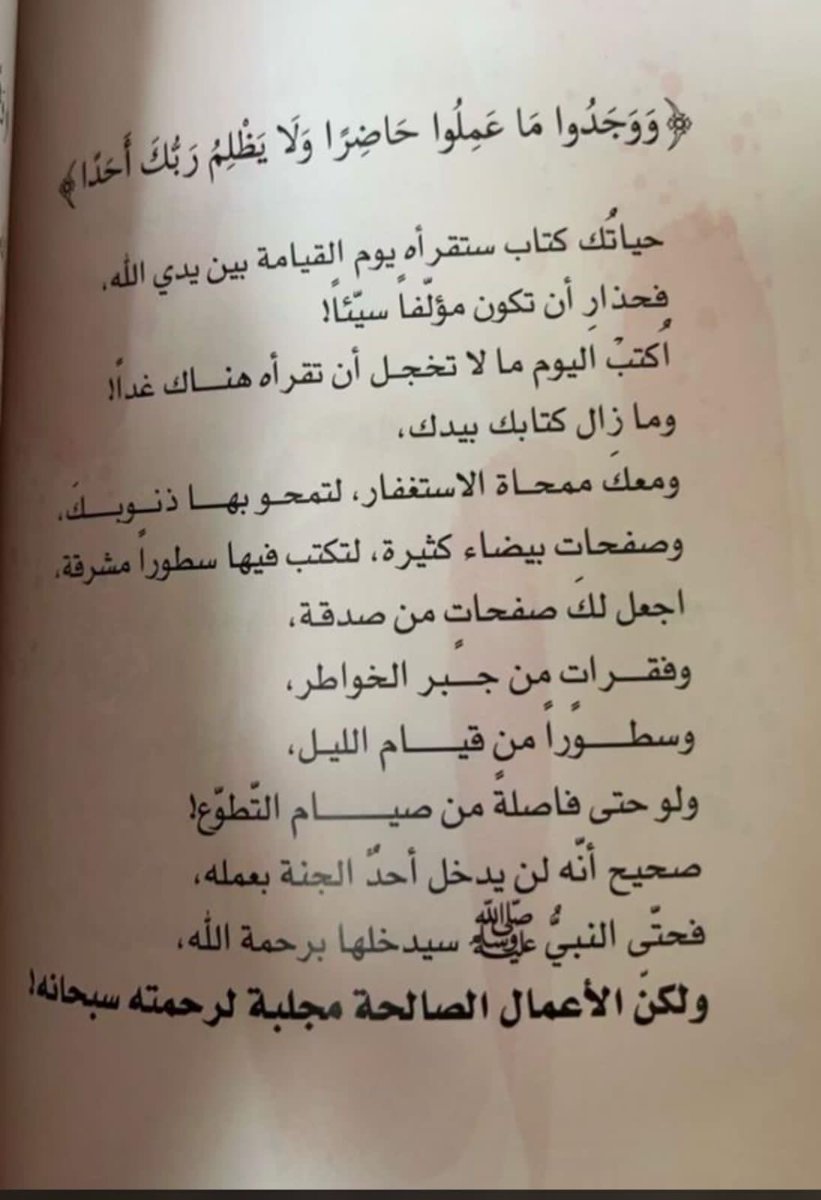 ﴿وَوَجَدُوا مَا عَمِلُوا حَاضِرًا وَلَا يَظْلِمُ رَبُّكَ أَحَدًا﴾
حياتُك كتاب ستقرأه يوم القيامة بين يدي الله،
فحذارِ أن تكون مؤلّفاً سيّئاً!
اُكتبْ اليوم ما لا تخجل أن تقرأه هناك غداً!
وما زال كتابك بيدك،
ومعكَ ممحاة الاستغفار، لتمحو بها ذنوبكَ،
وصفحات بيضاء كثيرة، لتكتب فيها سطوراً مشرقة،
اجعل لكَ صفحاتٍ من صدقة،
وفقراتٍ من جبر الخواطر،
وسطوراً من قيام الليل،
ولو حتى فاصلةً من صيام التّطوّع!
صحيح أنّه لن يدخل أحدٌ الجنة بعمله،
فحتّى النبيُّ ﷺ سيدخلها برحمة الله،
ولكنّ الأعمال الصالحة مجلبة لرحمته سبحانه!